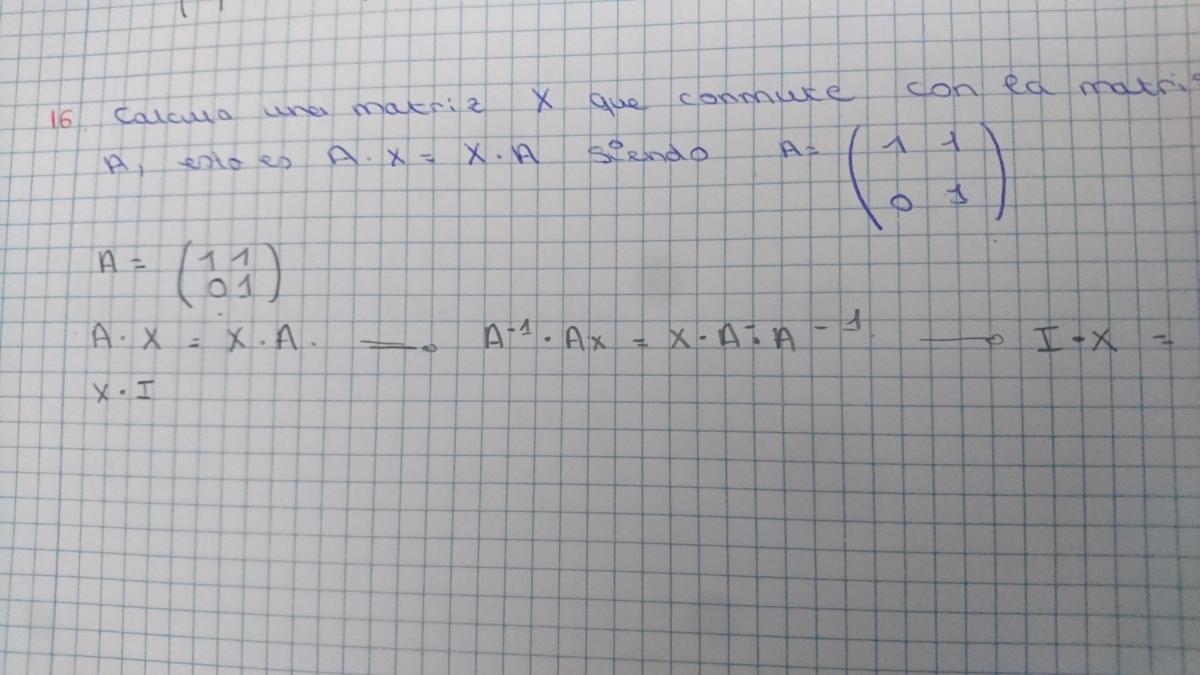 16. Calcula una matriz X que conmute con la matriz
A, esto es A·X = X·A siendo A = (1 1
0 1)
A = (1 1
0 1)
A·X = X·A. → A⁻¹·AX = X·A·A⁻¹ → I·X =
X·I